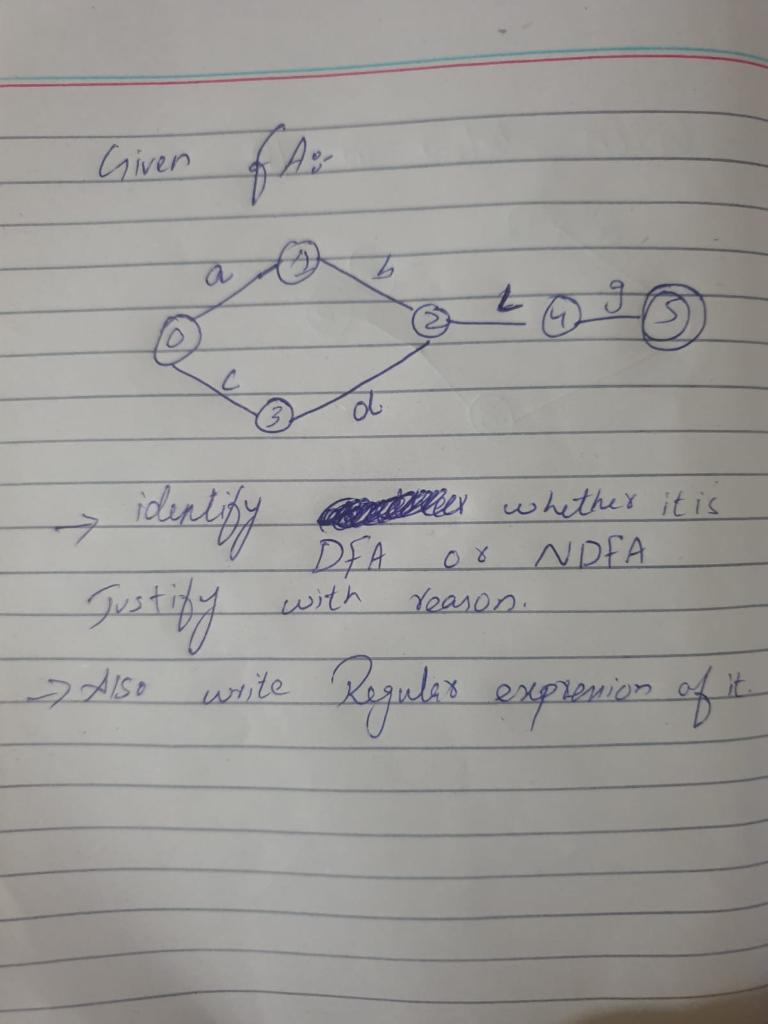 Given fA:-
1
a b
0 2 L 4 g 5
c 3 d
→ identify whether it is
DFA or NDFA
Justify with reason.
→ Also write Regular expression of it.